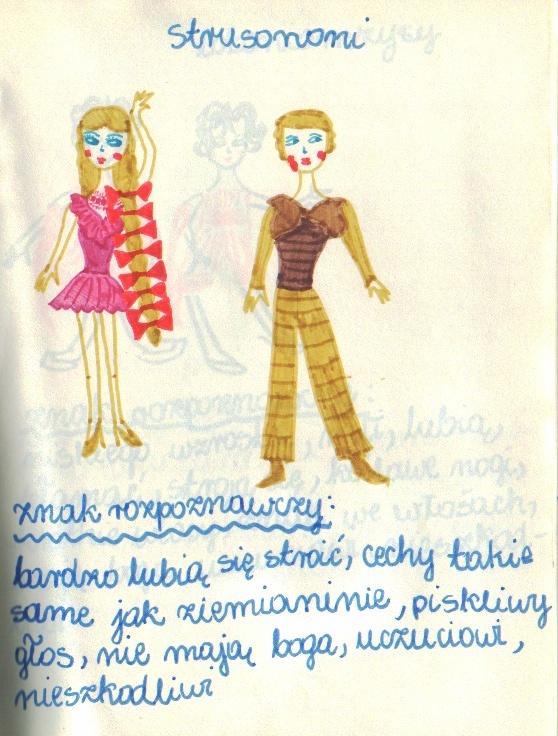 strusononi
znak rozpoznawczy:
bardzo lubią się stroić, cechy takie
same jak ziemianinie, piskliwy
głos, nie mają boga, uczuciowi,
nieszkodliwi